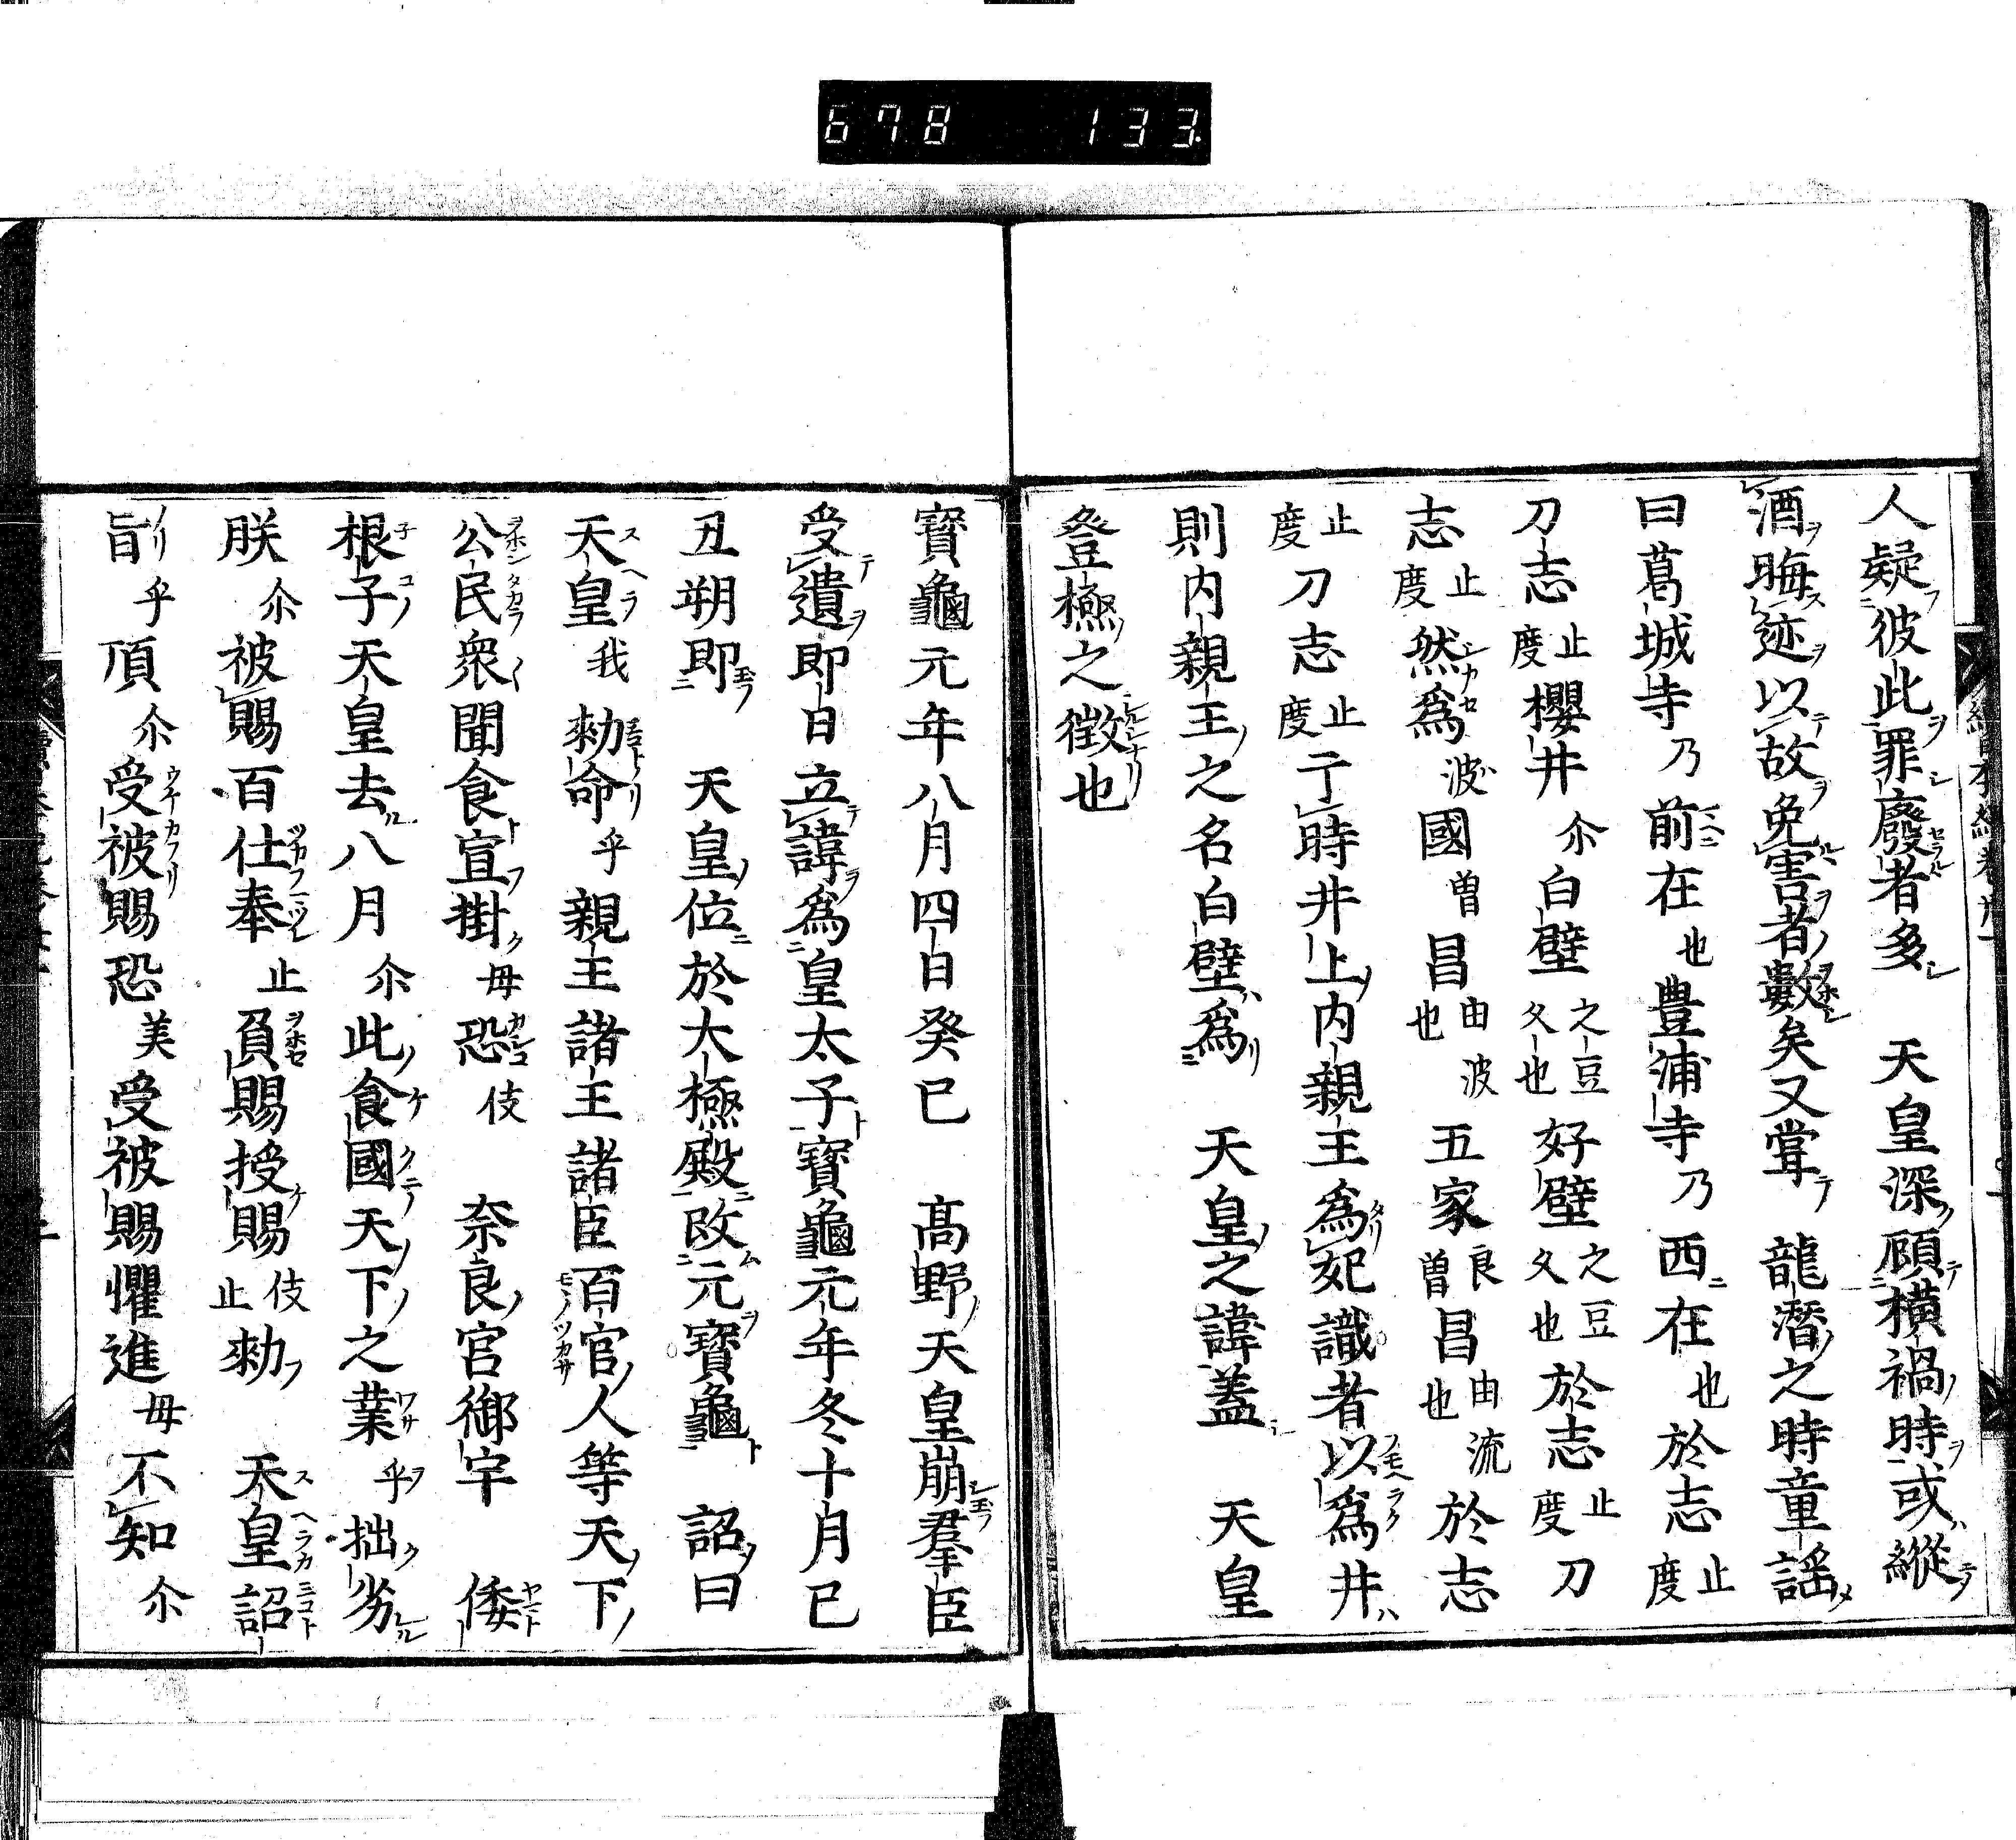 678 133
人疑彼此罪廢者多 天皇深顧横禍時或縱
酒晦迹以故免害者數矣又甞 龍潛之時童謡
曰葛城寺乃前在也豊浦寺乃西在也於志止度
刀志止度櫻井尒白壁之豆久也好壁之豆久也於志止度刀
志止度然爲波國曽昌由也波五家良曽昌由也流於志
止度刀志止度于時井上内親王爲妃識者以爲井
則内親王之名白壁爲 天皇之諱蓋 天皇
登極之徴也
寳龜元年八月四日癸巳 髙野天皇崩羣臣
受遺即日立諱爲皇太子寳龜元年冬十月己
丑朔即 天皇位於大極殿改元寳龜 詔曰
天皇我勅命乎親王諸王諸臣百官人等天下
公民衆聞食宣掛毋恐伎 奈良宮御宇 倭
根子天皇去八月尒此食國天下之業乎拙劣
朕尒被賜百仕奉止負賜授賜伎止勅 天皇詔
旨乎頂尒受被賜恐美受被賜懼進毋不知尒